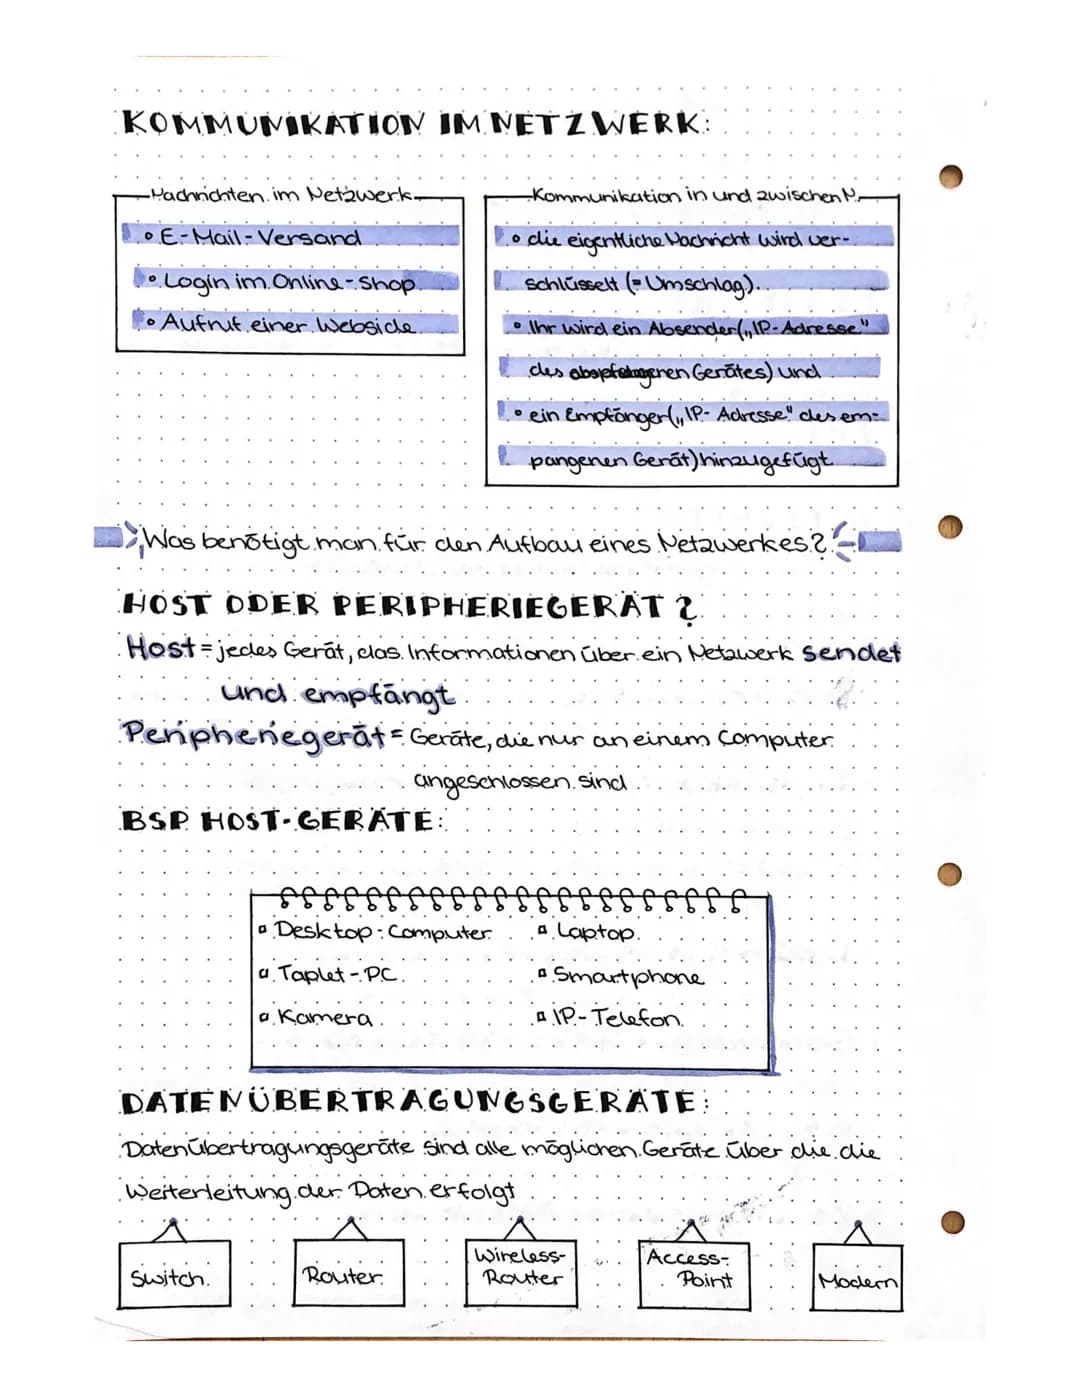 KOMMUNIKATION IM NETZWERK:
Nachrichten im Netzwerk
• E-Mail-Versand
• Login im Online-Shop
• Aufruf einer Webside
Kommunikation in und zwischen N.
• die eigentliche Nachricht wird ver-
schlüsselt (= Umschlag).
• Ihr wird ein Absender („IP-Adresse"
des Gerätes) und
• ein Empfänger („IP-Adresse" des em-
pangenen Gerät) hinzugefügt
Was benötigt man für den Aufbau eines Netzwerkes?
HOST ODER PERIPHERIEGERÄT?
Host = jedes Gerät, das Informationen über ein Netzwerk sendet
und empfängt
Peripheriegerät = Geräte, die nur an einem Computer
angeschlossen sind
BSP. HOST-GERÄTE:
▫ Desktop-Computer ▫ Laptop
▫ Taplet-PC ▫ Smartphone
▫ Kamera ▫ IP-Telefon
DATENÜBERTRAGUNGSGERÄTE:
Datenübertragungsgeräte sind alle möglichen Geräte über die die
Weiterleitung der Daten erfolgt
Switch
Router
Wireless-
Router
Access-
Point
Modem